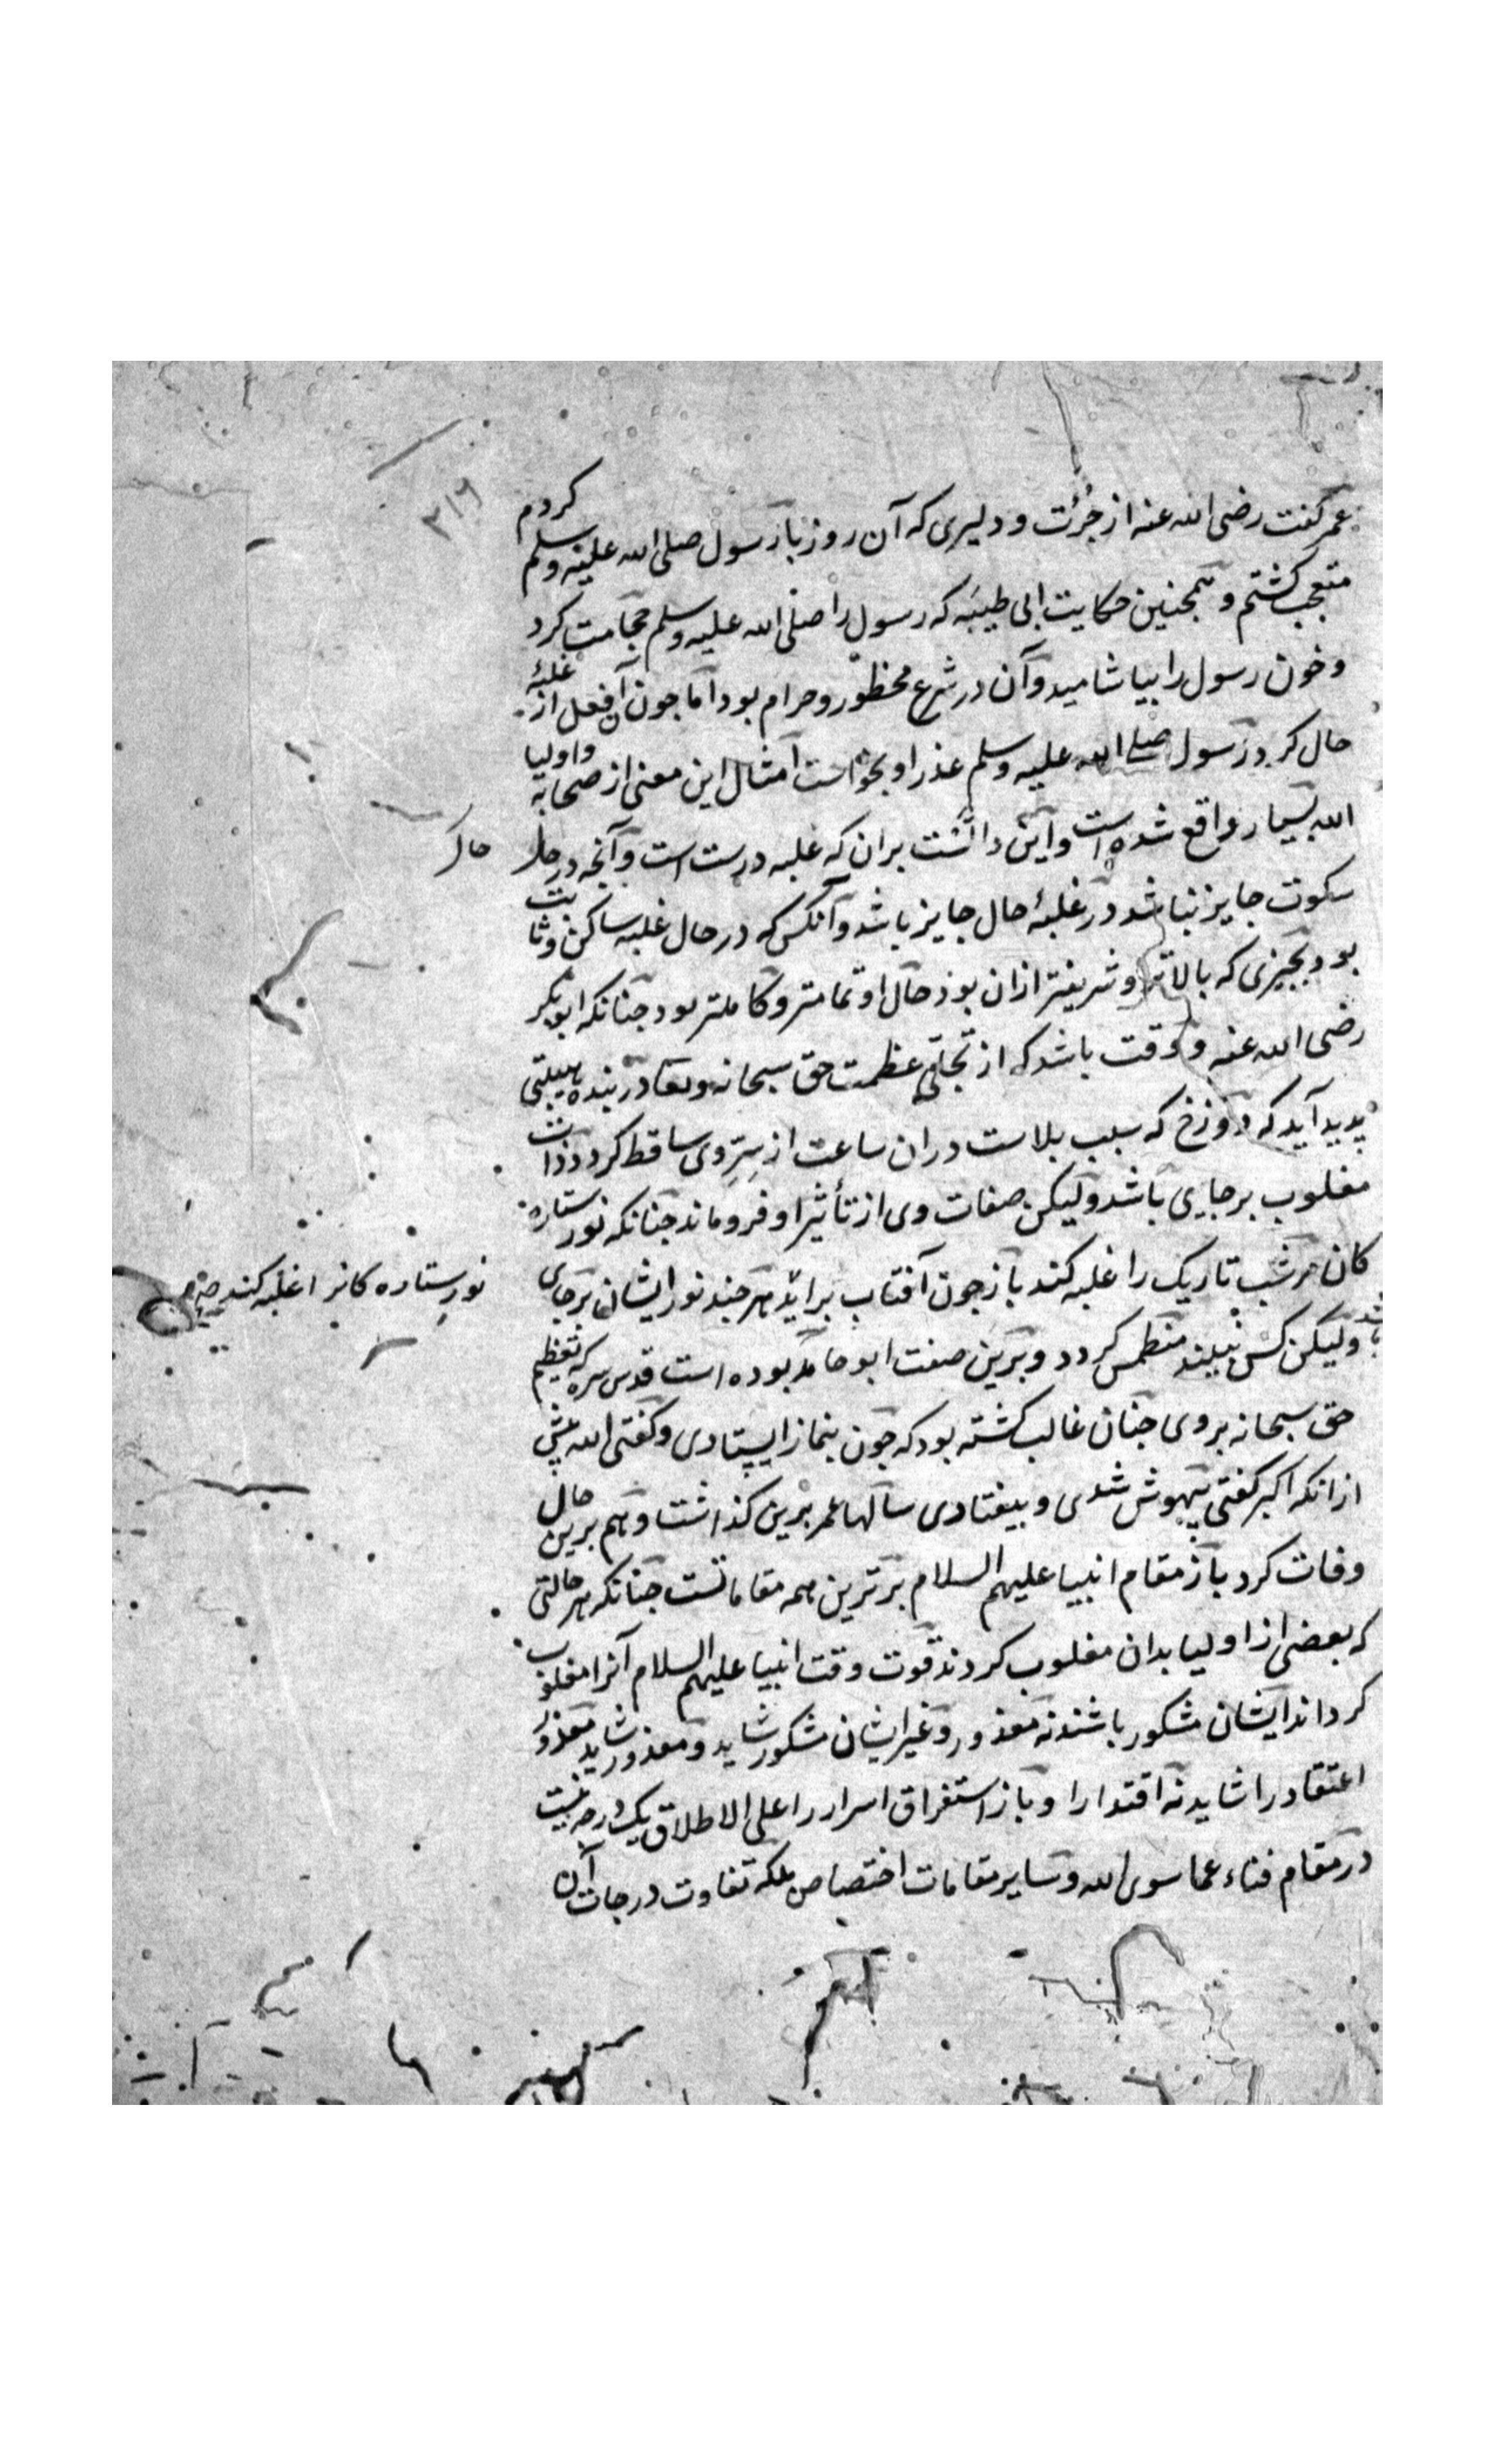 ۲۱۶
عمر گفت رضی الله عنه از جُرئت و دلیری که آن روز با رسول صلی الله علیه وسلم کردم
متعجب گشتم و همچنین حکایت ابی طیبَه که رسول را صلی الله علیه وسلم حجامت کرد
و خون رسول را بیاشامید و آن در شرع محظور و حرام بود اما جون آن فعل از غلبهٔ
حال کرد رسول صلی الله علیه وسلم عذر او بخواست امثال این معنی از صحابه و اولیا
الله بسیار واقع شده است و این دالّست بران که غلبه درست است و آنجه در حال
حال
سکوت جایز نباشد در غلبهٔ حال جایز باشد و آنکس که در حال غلبه ساکن و ثابت
بود بجیزی که بالاتر و شریفتر ازان بود حال او تمامتر و کاملتر بود جنانکه ابو بکر
رضی الله عنه و وقت باشد که از تجلّی عظمت حق سبحانه و تعا در بنده هیبتی
پدید آید که دوزخ که سبب بلاست دران ساعت از سِرِّ وی ساقط کردد ذات
مغلوب بر جایی باشد ولیکن صفات وی از تأثیر او فرو ماند جنانکه نور ستاره
کان مر شب تاریک را غلبه کند باز جون آفتاب براید هر جند نور ایشان بر جای
نور ستاره کانرا غلبه کند
باشد ولیکن کس نبیند منطمس کردد و برین صفت ابو حامد بوده است قدس سره که تعظیم
حق سبحانه بر وی جنان غالب کشته بود که جون بنماز ایستادی و کفتی الله پیش
ازانکه اکبر کفتی بیهوش شدی و بیفتادی سالها عمر برین کذاشت و هم برین حال
وفات کرد باز مقام انبیا علیهم السلام برترین همه مقاماتست جنانکه هر حالتی
که بعضی از اولیا بدان مغلوب کردند قوت وقت انبیا علیهم السلام آنرا مغلوب
کرداند ایشان مشکور باشند نه معذور و غیر ایشان مشکور شاید و معذور شاید معذور
اعتقاد را شاید نه اقتدا را و باز استغراق اسرار را علی الاطلاق یک درجه نیست
در مقام فناء عما سوی الله و سایر مقامات اختصاص بلکه تفاوت درجات آن